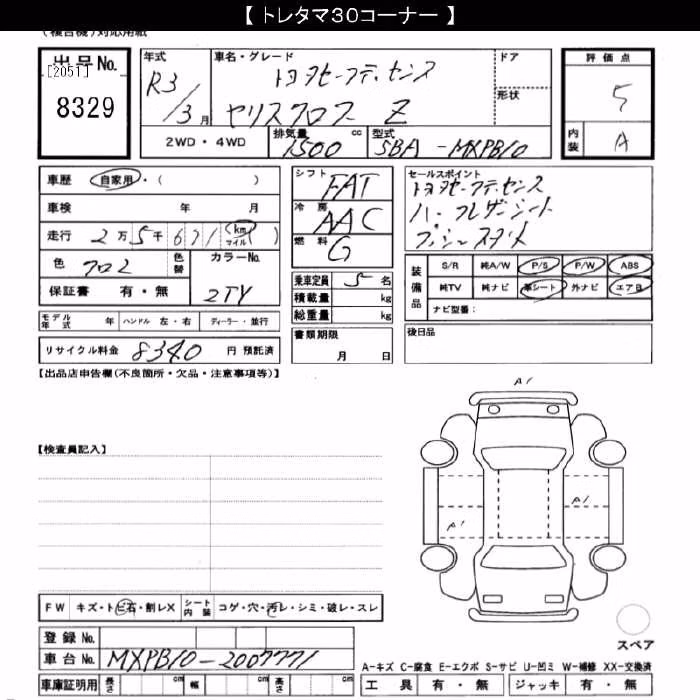 【 トレタマ30コーナー 】
(複合機)対応用紙
出品No.
[2051]
8329
年式
R3/3月
車名・グレード
トヨタセーフティセンス
ヤリスクロス Z
ドア
形状
2WD・4WD
排気量 1500 cc
型式 5BA-MXPB10
評価点
5
内装 A
車歴 自家用・( )
車検 年 月
走行 2万5千671(km マイル)
色 クロ2
色替
カラーNo. 2TY
保証書 有・無
シフト FAT
冷房 AAC
燃料 G
乗車定員 5名
積載量 kg
総重量 kg
セールスポイント
トヨタセーフティセンス
ハーフレザーシート
プッシュスタート
装備品
S/R 純A/W P/S P/W ABS
純TV 純ナビ 革シート 外ナビ エアB
ナビ型番:
モデル年式 年 ハンドル 左・右 ディーラー・並行
リサイクル料金 8340 円 預託済
書類期限
月 日
後日品
【出品店申告欄(不良箇所・欠品・注意事項等)】
A1
【検査員記入】
A1
A1
FW キズ・トビ石・割レX シート内装 コゲ・穴・汚レ・シミ・破レ・スレ
登録No.
車台No. MXPB10-2007771
車庫証明用 長さ cm 幅 cm 高さ cm
スペア
A-キズ C-腐食 E-エクボ S-サビ U-凹ミ W-補修 XX-交換済
工具 有・無 ジャッキ 有・無